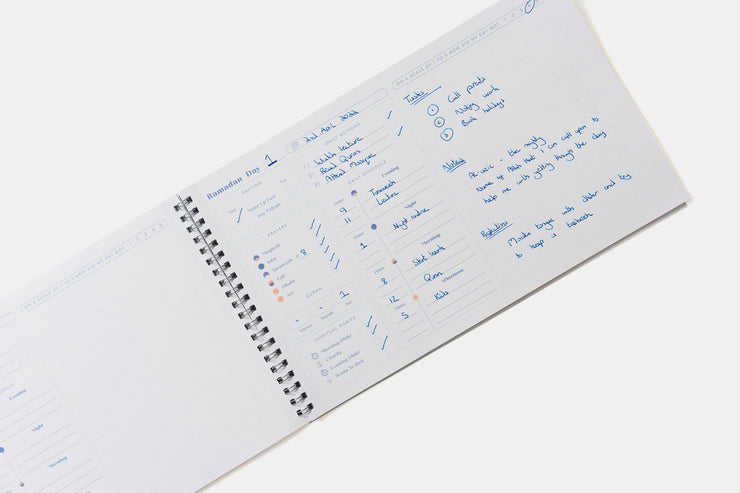 ON A SCALE OF 1 TO 5 HOW DID MY DAY GO? 1 2 3 4 5
SCHEDULE
Evening
Night
Morning
Ramadan Day 1
FASTING
Yes
No
Make Up Fast
Pay Fidyah
PRAYERS
Maghrib
Isha
Taraweeh # 8
Fajr
Dhuhr
Asr
QURAN
- - 1
Verse Surah Juz
SPIRITUAL HABITS
Morning Dhikr
Charity
Evening Dhikr
Wudu to Bed
2nd April 2022
DAILY ACTIONS
1) Watch Lecture
2) Read Quran
3) Attend Mosque
DAILY SCHEDULE
Time
Evening
9 Taraweeh
11 Lecture
Time
Night
1 Night
Time
Morning
8 Start work
Quran
Time
Afternoon
12
5 Kids
ON A SCALE OF 1 TO 5 HOW DID MY DAY GO? 1 2 3
Tasks
1 Call
2 Notify work
3 Book holidays
Notes
Al-Aziz - the mighty
Name of Allah that I can call upon to
help me with getting through the day
Reflection
tongue with dhikr and try
to keep it